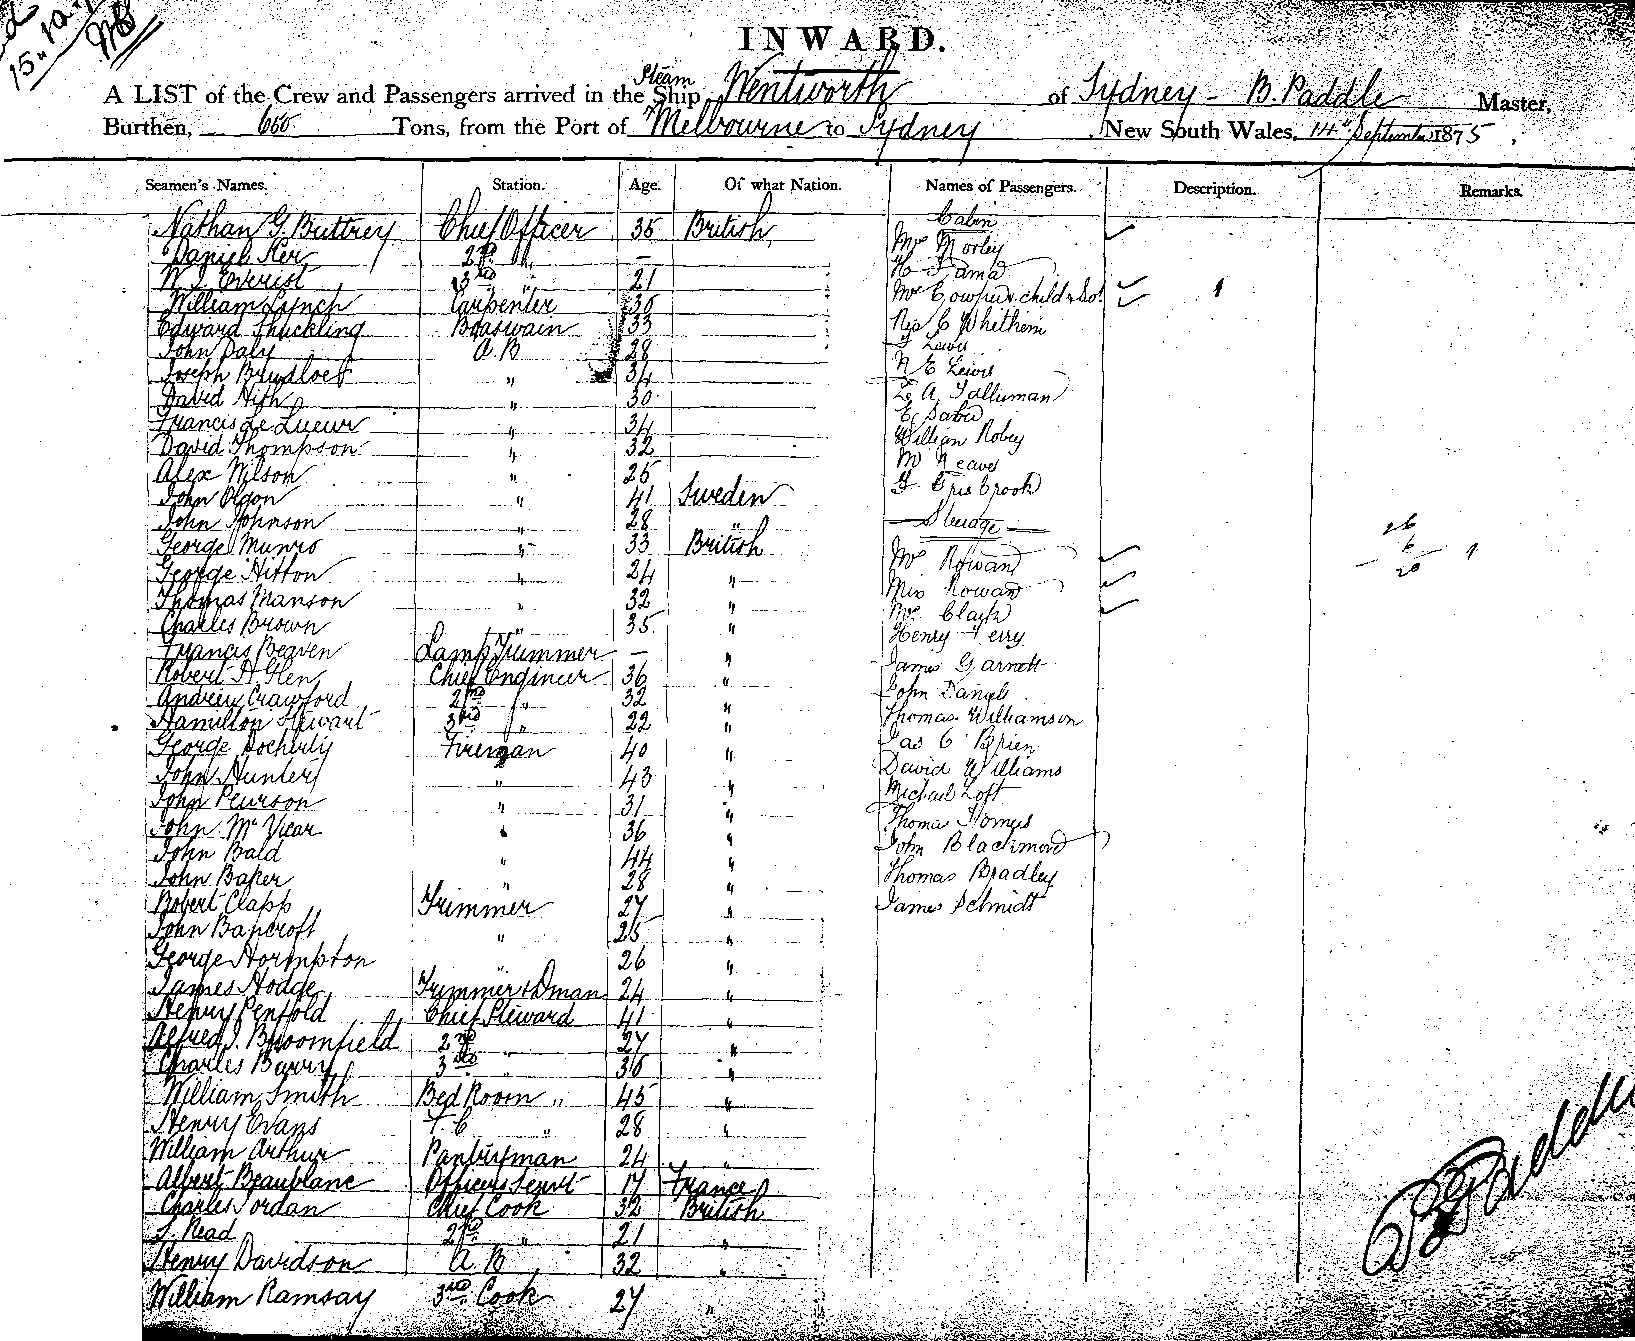 15.12.
INWARD.
A LIST of the Crew and Passengers arrived in the Steam Ship Wentworth of Sydney - B. Paddle Master,
Burthen, 650 Tons, from the Port of Melbourne to Sydney New South Wales, 14th September 1875
Seamen's Names. Station. Age. Of what Nation. Names of Passengers. Description. Remarks.
Nathan G. Buttrey Chief Officer 35 British Cabin
Daniel Ker 2nd " — Mrs Morley
W. J. Everist 3rd " 21 H
William Lynch Carpenter 30 Mrs Cowper child &
Edward Shuckling Boaswain 33 C Whithem
John Daly A.B 28 Lewis
Joseph 34 N E Lewis
David 30 A
Francis Le Lueur " 34 E
David Thompson " 32 William Robey
Alex Wilson " 25 M Neaves
John Olson " 41 Sweden
John Johnson " 28 " Steerage
George Munro " 33 British Mrs Rowan
George Hitton " 24 " Miss Rowan
Thomas Manson " 32 " Mrs Clark
Charles Brown " 35 " Henry Terry
Francis Beaven Lamp Trimmer — " James Garnett
Robert H. Glen Chief Engineer 36 " John Daniels
Andrew Crawford 2nd " 32 " Thomas Williamson
Hamilton Stewart 3rd " 22 " Jas O'Brien
George Docherty Fireman 40 " David Williams
John Hunter " 43 " Michael Loft
John Pearson " 31 " Thomas
John McVicar " 36 " John Blackmore
John Bald " 44 " Thomas Bradley
John Baker " 28 " James Schmidt
Robert Clapp Trimmer 27 "
John Bancroft " 25 "
George Hormpton " 26 "
James Hodge Trimmer & Dman 24 "
Henry Penfold Chief Steward 41 "
Alfred J. Broomfield 2nd " 27 "
Charles Barry 3rd " 36 "
William Smith Bed Room " 45 "
Henry Evans F. C " 28 "
William Arthur Pantryman 24 "
Albert Beaublanc Officers Servt 17 France
Charles Jordan Chief Cook 32 British
Read 2nd " 21 "
Henry Davidson A.B 32 "
William Ramsay 3rd Cook 27 "
26
6
20